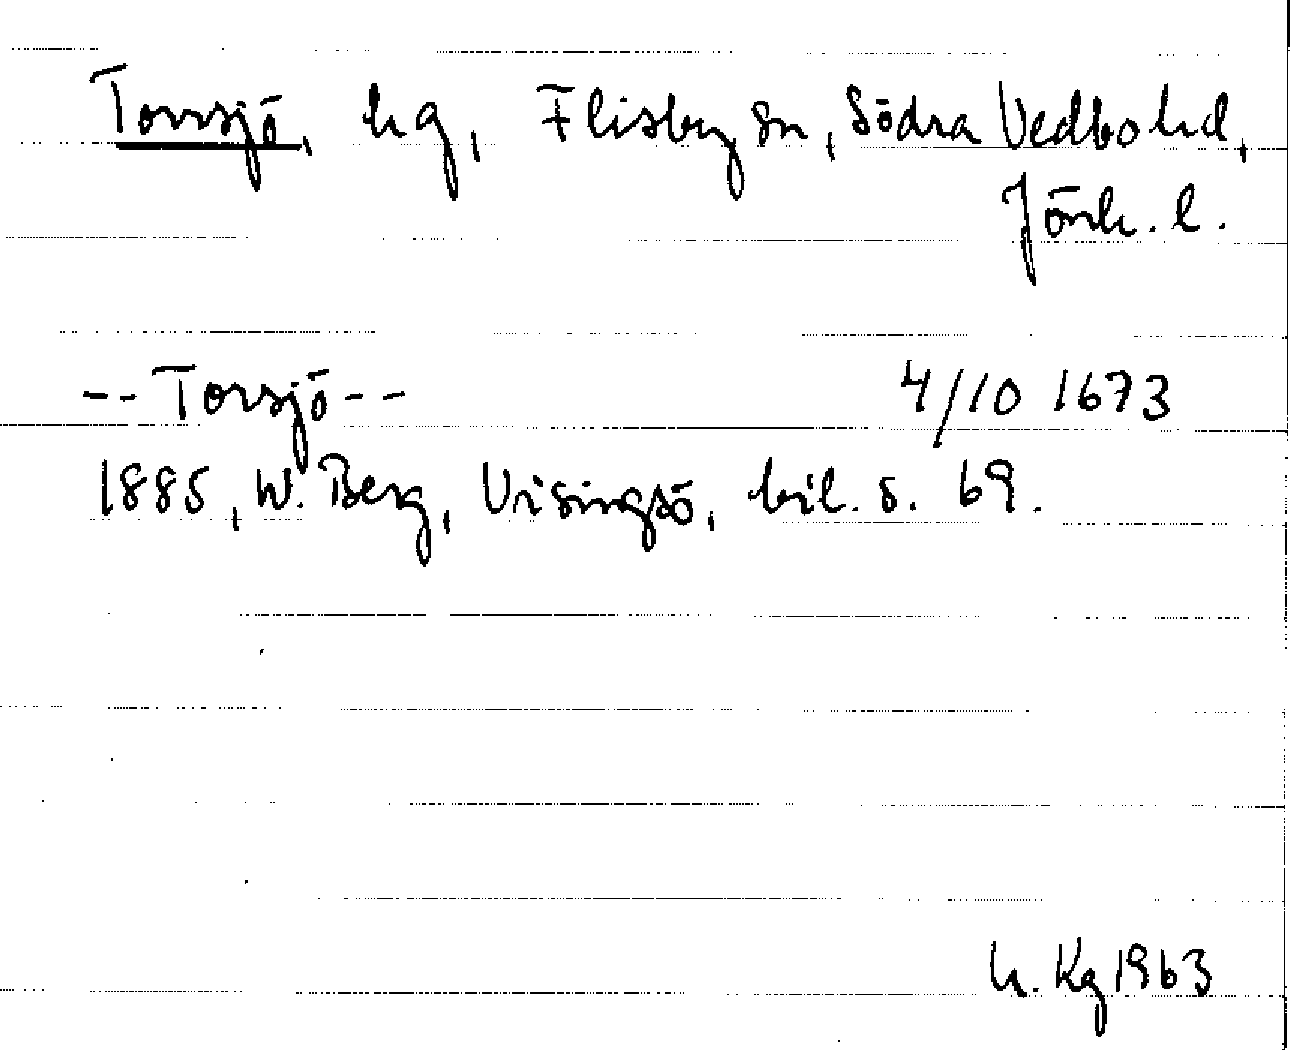 Torsjö, hg, Flisby sn, Södra Vedbo hd,
Jönk. l.
-- Torsjö -- 4/10 1673
1885, W. Berg, Visingsö, bil. s. 69.
H. Kg 1963